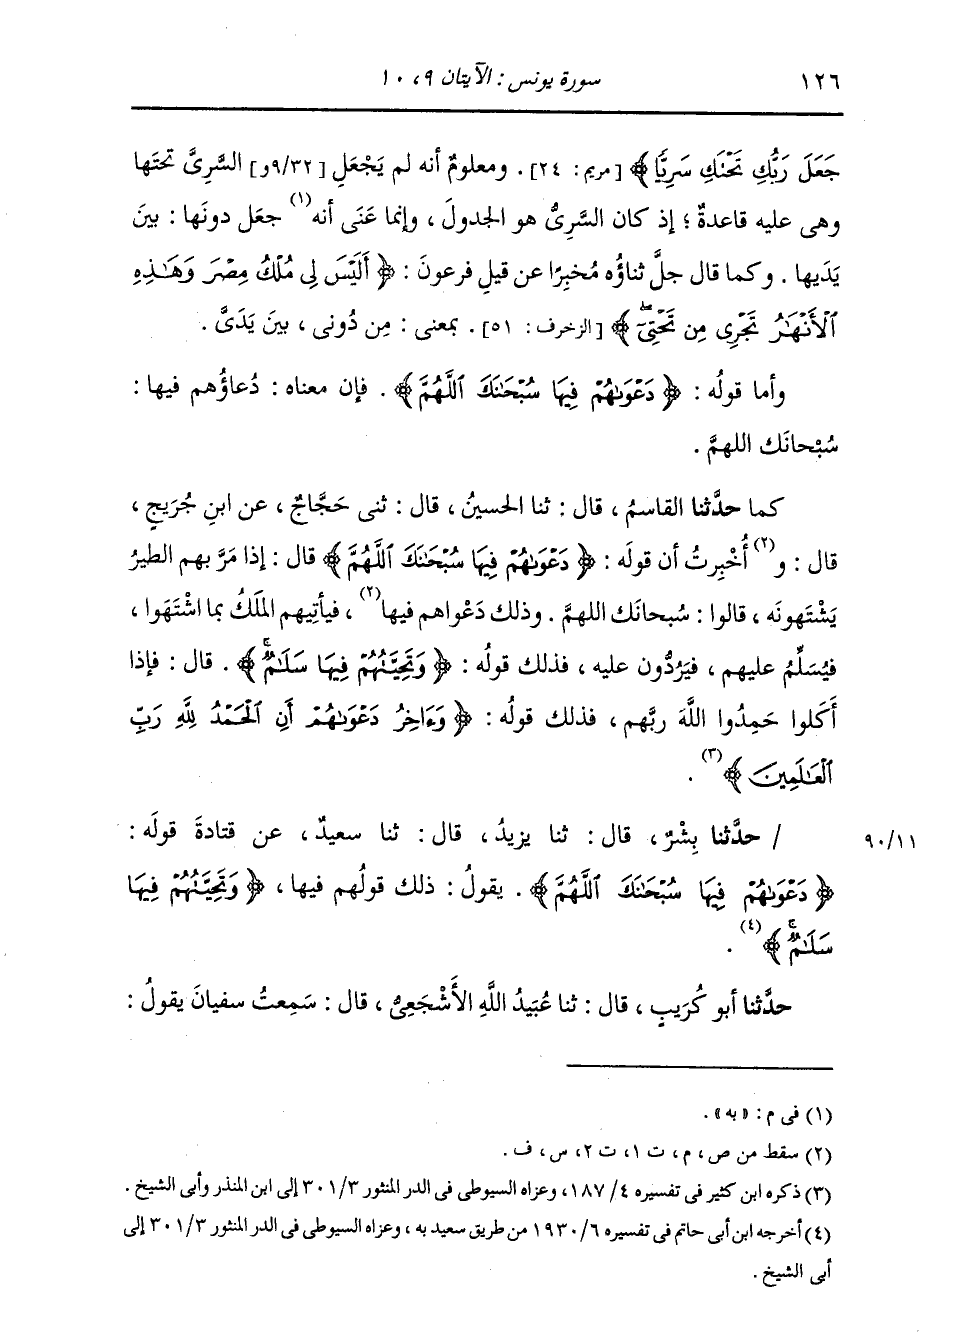 ١٢٦ سورة يونس : الآيتان ٩ ، ١٠
جَعَلَ رَبُّكِ تَحْتَكِ سَرِيًّا﴾ [مريم : ٢٤] . ومعلومٌ أنه لم يَجْعَلِ [٩/٣٢و] السَّرِىَّ تحتَها
وهى عليه قاعدةٌ ؛ إذ كان السَّرِىُّ هو الجدولَ ، وإنما عَنَى أنه(١) جعَل دونَها : بينَ
يَدَيها . وكما قال جلَّ ثناؤُه مُخبِرًا عن قيلِ فرعونَ : ﴿أَلَيْسَ لِي مُلْكُ مِصْرَ وَهَٰذِهِ
الْأَنْهَٰرُ تَجْرِى مِن تَحْتِىٓ﴾ [الزخرف : ٥١] . بمعنى : مِن دُونى ، بينَ يَدَىَّ .
وأما قولُه : ﴿دَعْوَىٰهُمْ فِيهَا سُبْحَٰنَكَ اللَّهُمَّ﴾ . فإن معناه : دُعاؤُهم فيها :
سُبْحانَك اللهمَّ .
كما حدَّثنا القاسمُ ، قال : ثنا الحسينُ ، قال : ثنى حَجَّاجٌ ، عن ابنِ جُرَيجٍ ،
قال : و(٢) أُخْبِرتُ أن قولَه : ﴿دَعْوَىٰهُمْ فِيهَا سُبْحَٰنَكَ اللَّهُمَّ﴾ قال : إذا مَرَّ بهم الطيرُ
يَشْتَهونَه ، قالوا : سُبحانَك اللهمَّ . وذلك دَعْواهم فيها(٢) ، فيأتِيهم المَلَكُ بما اشْتَهَوا ،
فيُسَلِّمُ عليهم ، فيَرُدُّون عليه ، فذلك قولُه : ﴿وَتَحِيَّتُهُمْ فِيهَا سَلَٰمٌ﴾ . قال : فإذا
أَكَلوا حَمِدُوا اللَّهَ ربَّهم ، فذلك قولُه : ﴿وَءَاخِرُ دَعْوَىٰهُمْ أَنِ الْحَمْدُ لِلَّهِ رَبِّ
الْعَٰلَمِينَ﴾(٣) .
١١/٩٠ / حدَّثنا بِشْرٌ ، قال : ثنا يزيدُ ، قال : ثنا سعيدٌ ، عن قتادةَ قولَه :
﴿دَعْوَىٰهُمْ فِيهَا سُبْحَٰنَكَ اللَّهُمَّ﴾ . يقولُ : ذلك قولُهم فيها ، ﴿وَتَحِيَّتُهُمْ فِيهَا
سَلَٰمٌ﴾(٤) .
حدَّثنا أبو كُرَيبٍ ، قال : ثنا عُبَيدُ اللَّهِ الأَشْجَعِىُّ ، قال : سَمِعتُ سفيانَ يقولُ :
(١) فى م : «به» .
(٢) سقط من ص ، م ، ت ١ ، ت ٢ ، س ، ف .
(٣) ذكره ابن كثير فى تفسيره ٤/ ١٨٧ ، وعزاه السيوطى فى الدر المنثور ٣٠١/٣ إلى ابن المنذر وأبى الشيخ .
(٤) أخرجه ابن أبى حاتم فى تفسيره ١٩٣٠/٦ من طريق سعيد به ، وعزاه السيوطى فى الدر المنثور ٣٠١/٣ إلى
أبى الشيخ .